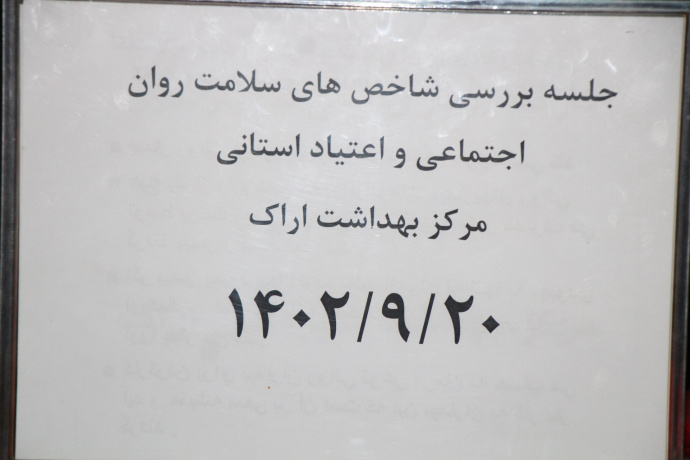 جلسه بررسی شاخص های سلامت روان
اجتماعی و اعتیاد استانی
مرکز بهداشت اراک
۱۴۰۲/۹/۲۰